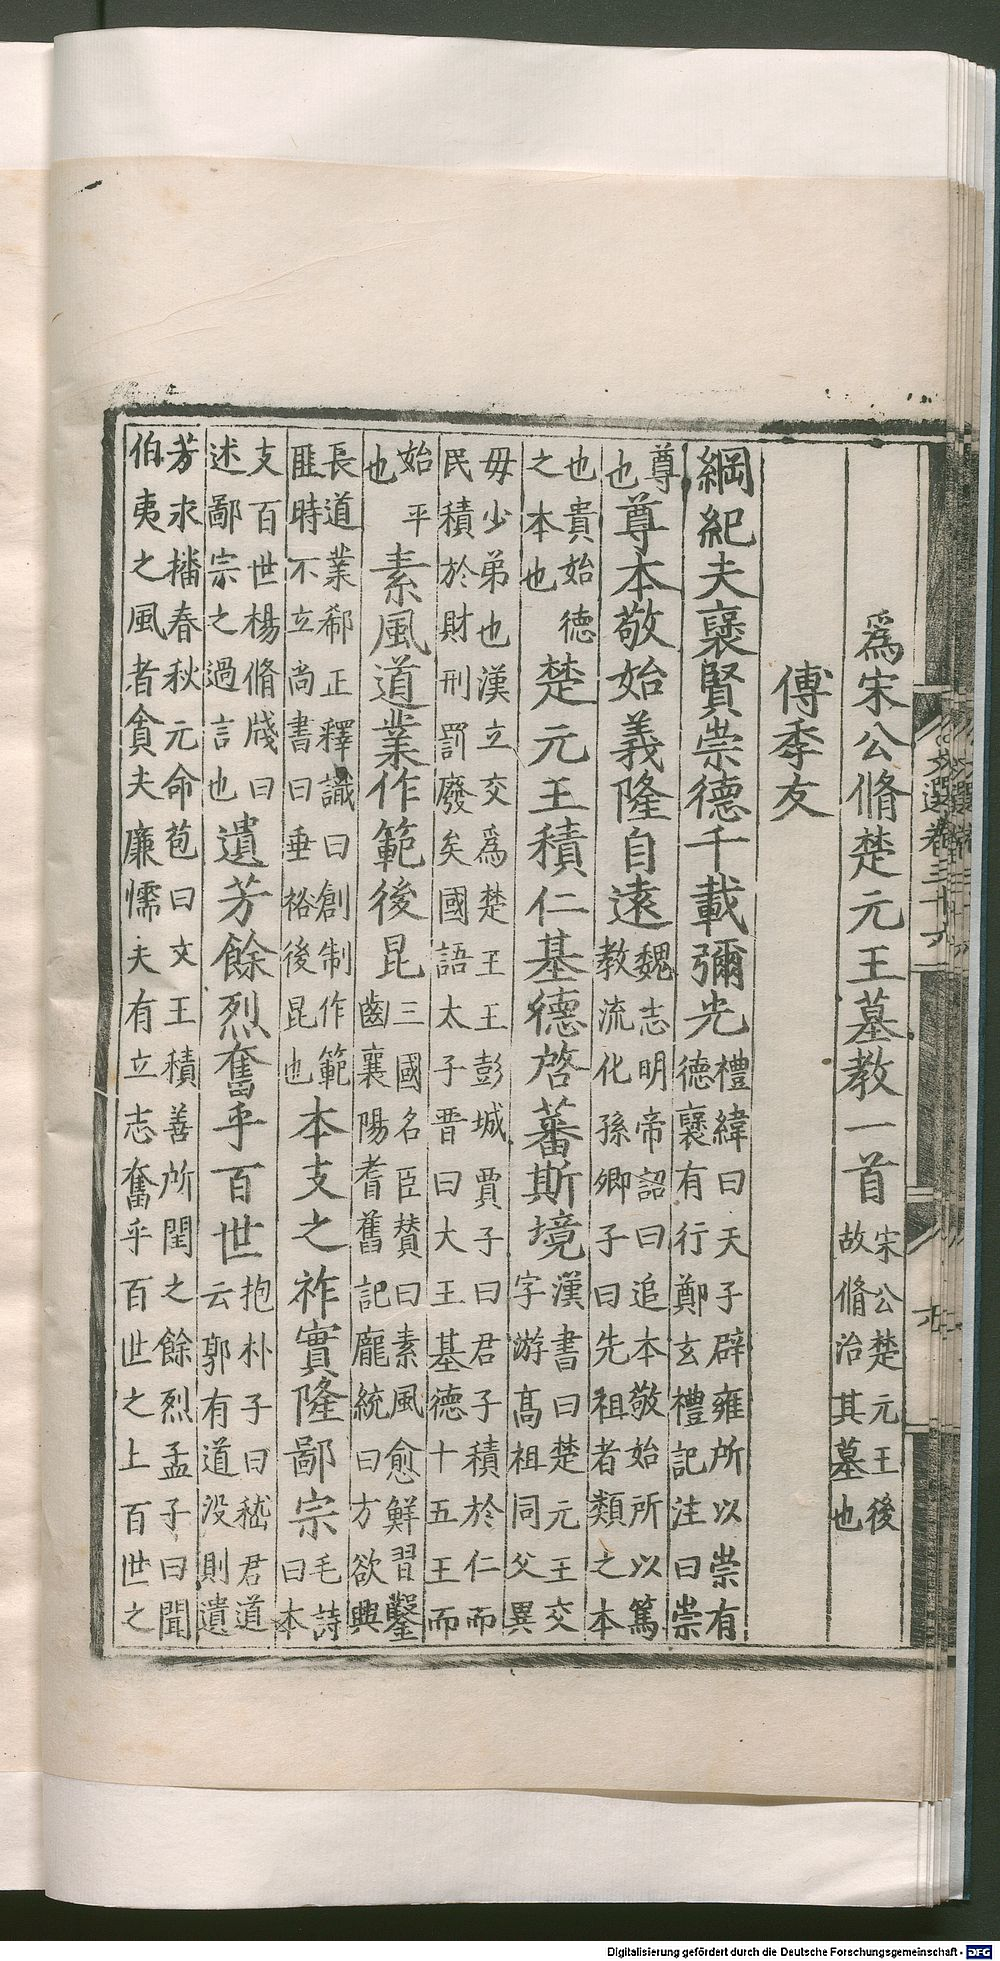 文選卷三十六
爲宋公脩楚元王墓教一首宋公楚元王後故脩治其墓也
傅季友
綱紀夫襃賢崇德千載彌光禮緯曰天子辟雍所以崇有德襃有行鄭玄禮記注曰崇
尊也尊本敬始義隆自遠魏志明帝詔曰追本敬始所以篤教流化孫卿子曰先祖者類之本
也貴始德之本也楚元王積仁基德啓蕃斯境漢書曰楚元王交字游高祖同父異
毋少弟也漢立交爲楚王王彭城賈子曰君子積於仁而民積於財刑罰廢矣國語太子晉曰大王基德十五王而
始平也素風道業作範後昆三國名臣賛曰素風愈鮮習鑿齒襄陽耆舊記龐統曰方欲興
長道業郗正釋譏曰創制作範匪時不立尚書曰垂裕後昆也本支之祚實隆鄙宗毛詩曰本
支百世楊脩牋曰述鄙宗之過言也遺芳餘烈奮乎百世抱朴子曰嵇君道云郭有道没則遺
芳求播春秋元命苞曰文王積善所閏之餘烈孟子曰聞伯夷之風者貪夫廉懦夫有立志奮乎百世之上百世之
Digitalisierung gefördert durch die Deutsche Forschungsgemeinschaft - DFG